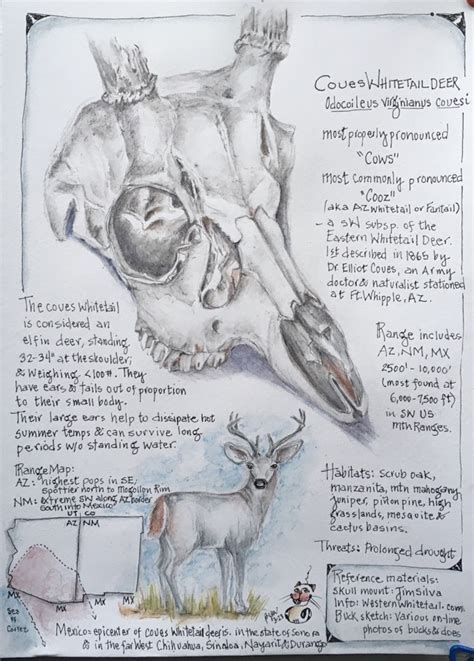 COUES WHITETAIL DEER
Odocoileus virginianus couesi
most properly pronounced
"COWS"
most commonly pronounced
"Cooz"
(aka AZ whitetail or Fantail)
- a SW subsp. of the
Eastern Whitetail Deer.
1st described in 1865 by
Dr Elliot Coues, an Army
doctor & naturalist stationed
at Ft. Whipple, AZ.
The Coues Whitetail
is considered an
elfin deer, standing
32-34" at the shoulder,
& weighing <100#. They
have ears & tails out of proportion
to their small body.
Their large ears help to dissipate hot
summer temps & can survive long
periods w/o standing water.
Range includes
AZ, NM, MX
2500' - 10,000'
(most found at
6,000-7,500 ft)
in SW US
mtn Ranges.
Range Map:
AZ: highest pops in SE,
spottier north to Mogollon Rim
NM: extreme SW along AZ border
south into Mexico
UT CO
AZ NM
MX
MX
MX
Sea
of
Cortez
Habitats: Scrub oak,
manzanita, mtn mahogany
juniper, piñon pine, high
grasslands, mesquite &
cactus basins.
Threats: Prolonged drought
Reference materials:
Skull mount: Jim Silva
Info: Westernwhitetail.com
Buck sketch: Various on-line
photos of bucks & does
Mexico: epicenter of Coues Whitetail deer is in the state of Sonora
& in the far West Chihuahua, Sinaloa, Nayarit & Durango